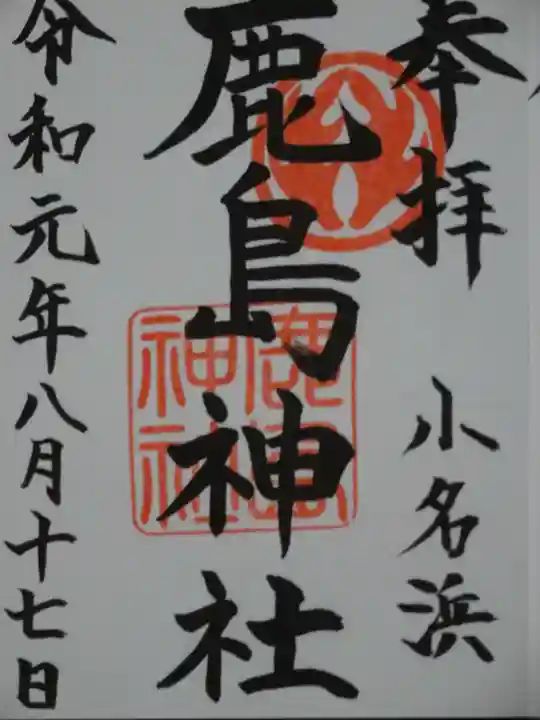 奉拝 小名浜
鹿島神社
令和元年八月十七日
鹿島
神社